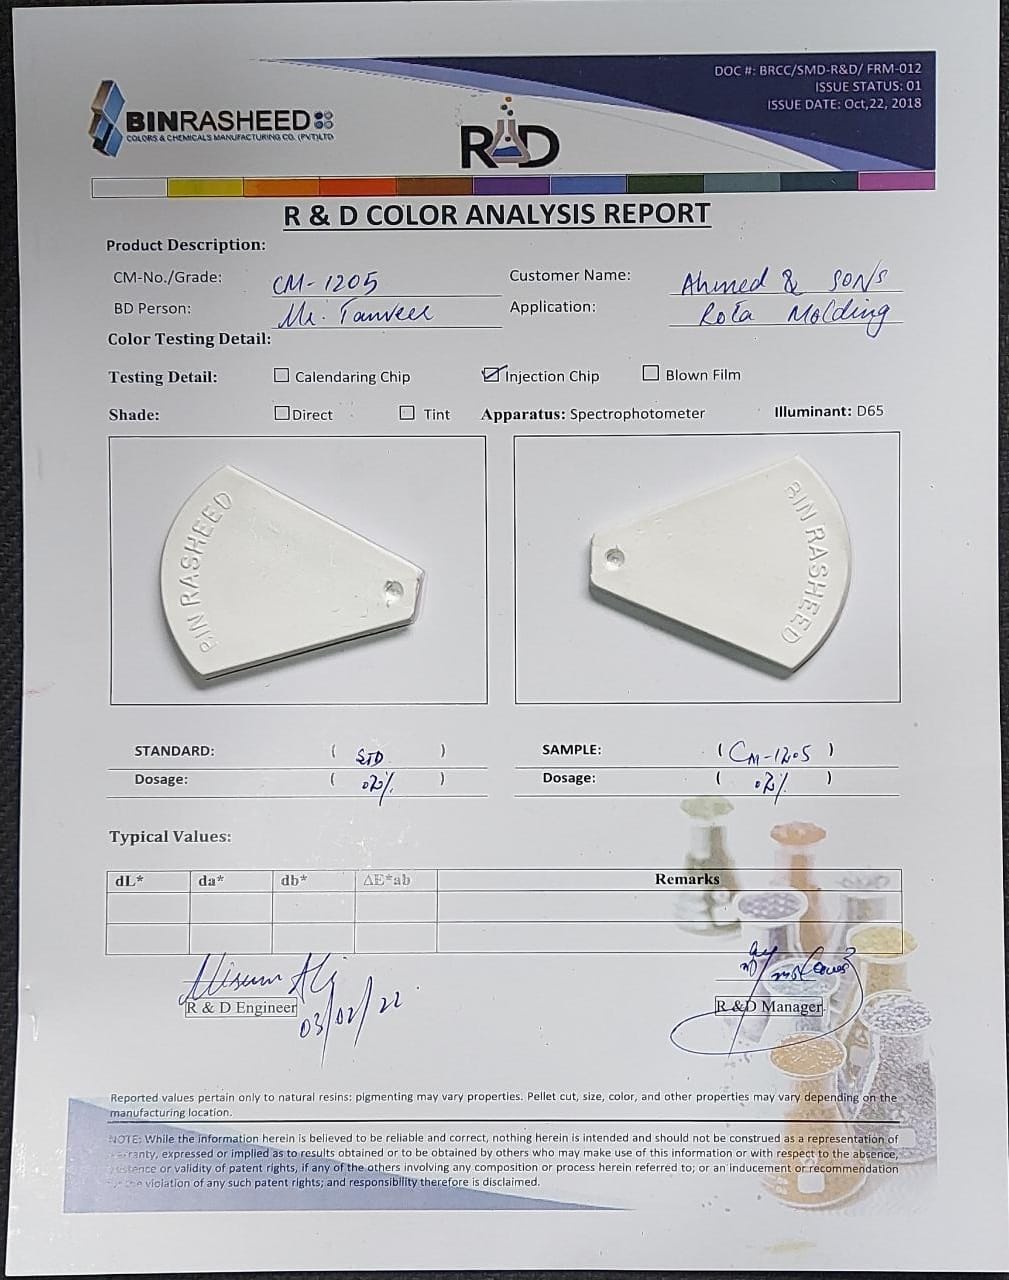 DOC #: BRCC/SMD-R&D/ FRM-012
ISSUE STATUS: 01
ISSUE DATE: Oct,22, 2018
BINRASHEED
COLORS & CHEMICALS MANUFACTURING CO. (PVT)LTD
R&D
R & D COLOR ANALYSIS REPORT
Product Description:
CM-No./Grade: CM-1205 Customer Name: Ahmed & SONS
BD Person: Mr. Tanveer Application: Rota Molding
Color Testing Detail:
Testing Detail: Calendaring Chip Injection Chip Blown Film
Shade: Direct Tint Apparatus: Spectrophotometer Illuminant: D65
BIN RASHEED BIN RASHEED
STANDARD: ( STD ) SAMPLE: ( CM-1205 )
Dosage: ( 02% ) Dosage: ( 02% )
Typical Values:
dL* da* db* ΔE*ab Remarks
R & D Engineer R &D Manager
03/02/22
Reported values pertain only to natural resins: pigmenting may vary properties. Pellet cut, size, color, and other properties may vary depending on the
manufacturing location.
NOTE: While the information herein is believed to be reliable and correct, nothing herein is intended and should not be construed as a representation of
warranty, expressed or implied as to results obtained or to be obtained by others who may make use of this information or with respect to the absence,
existence or validity of patent rights, if any of the others involving any composition or process herein referred to; or an inducement or recommendation
for the violation of any such patent rights; and responsibility therefore is disclaimed.